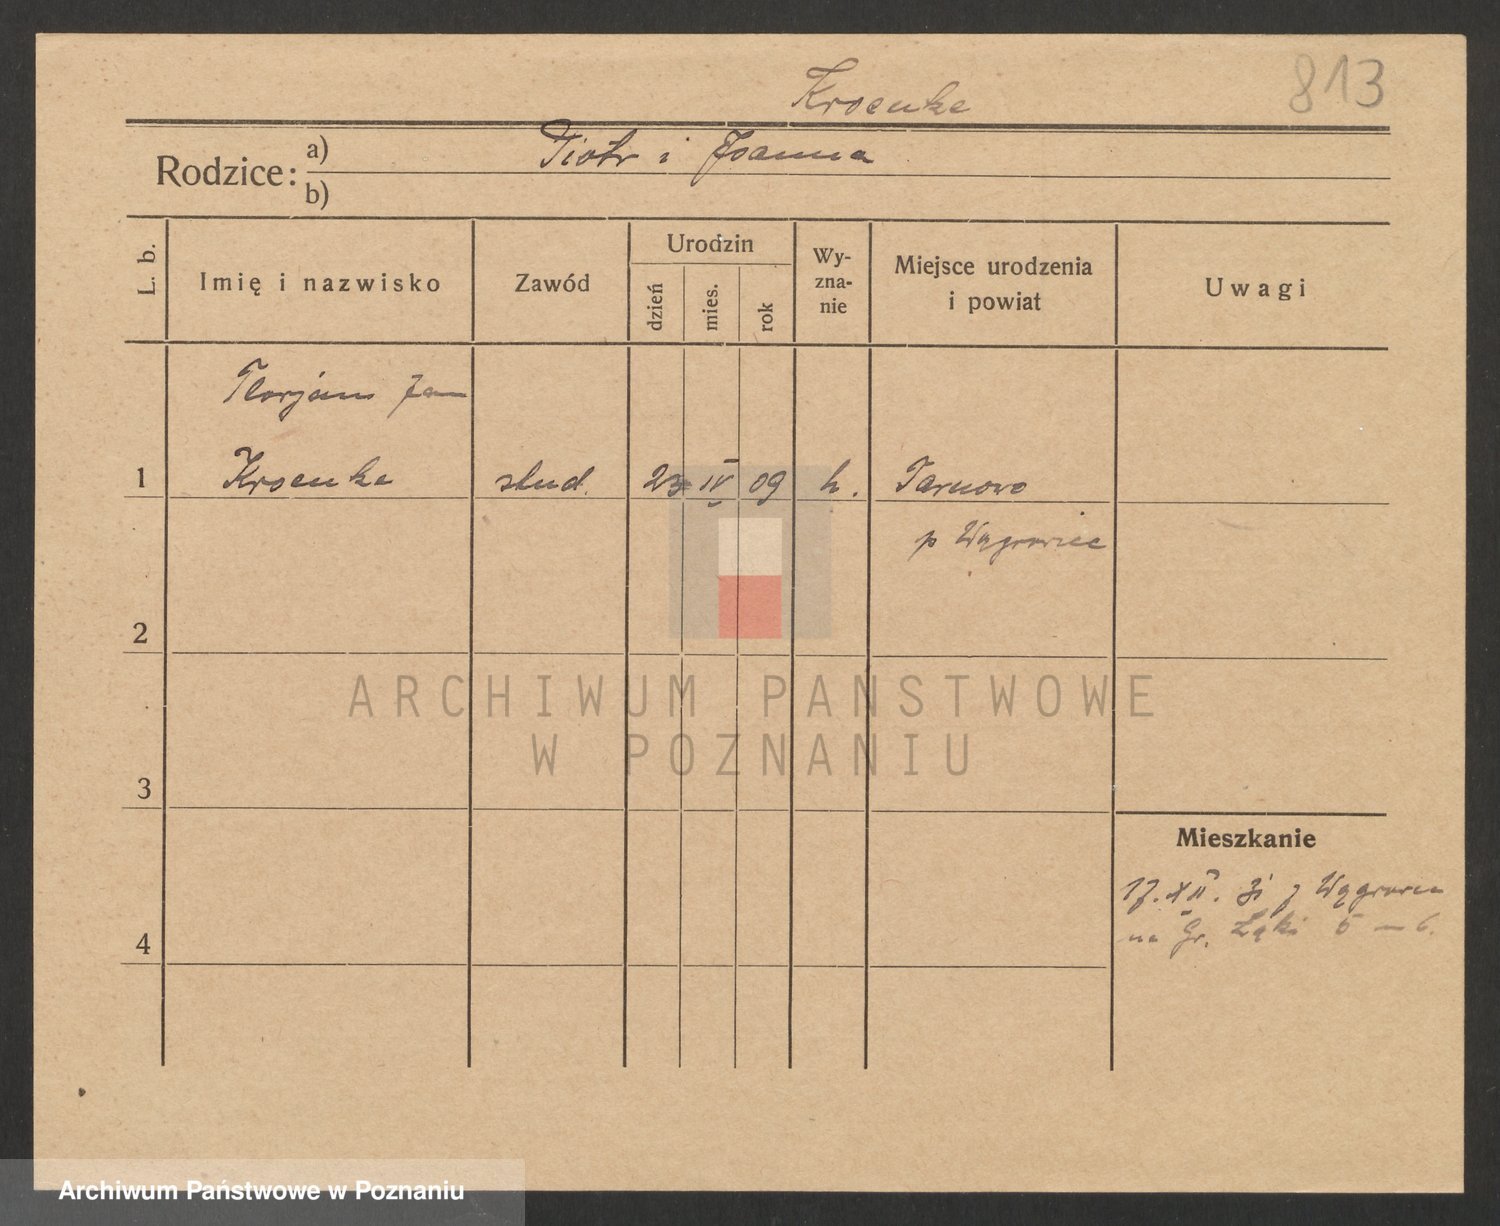 813
Kroenke
Rodzice: a) Piotr i Joanna
b)
L. b.
Imię i nazwisko
Zawód
Urodzin
dzień
mies.
rok
Wy-
zna-
nie
Miejsce urodzenia
i powiat
Uwagi
Florjan Jan
1 Kroenke stud. 23 IV 09 k. Tarnowo
p Wągrowiec
2
ARCHIWUM PAŃSTWOWE
W POZNANIU
3
Mieszkanie
17. XII. 31 z Wągrowca
4
na Gr. Łąki 5 – 6.
Archiwum Państwowe w Poznaniu